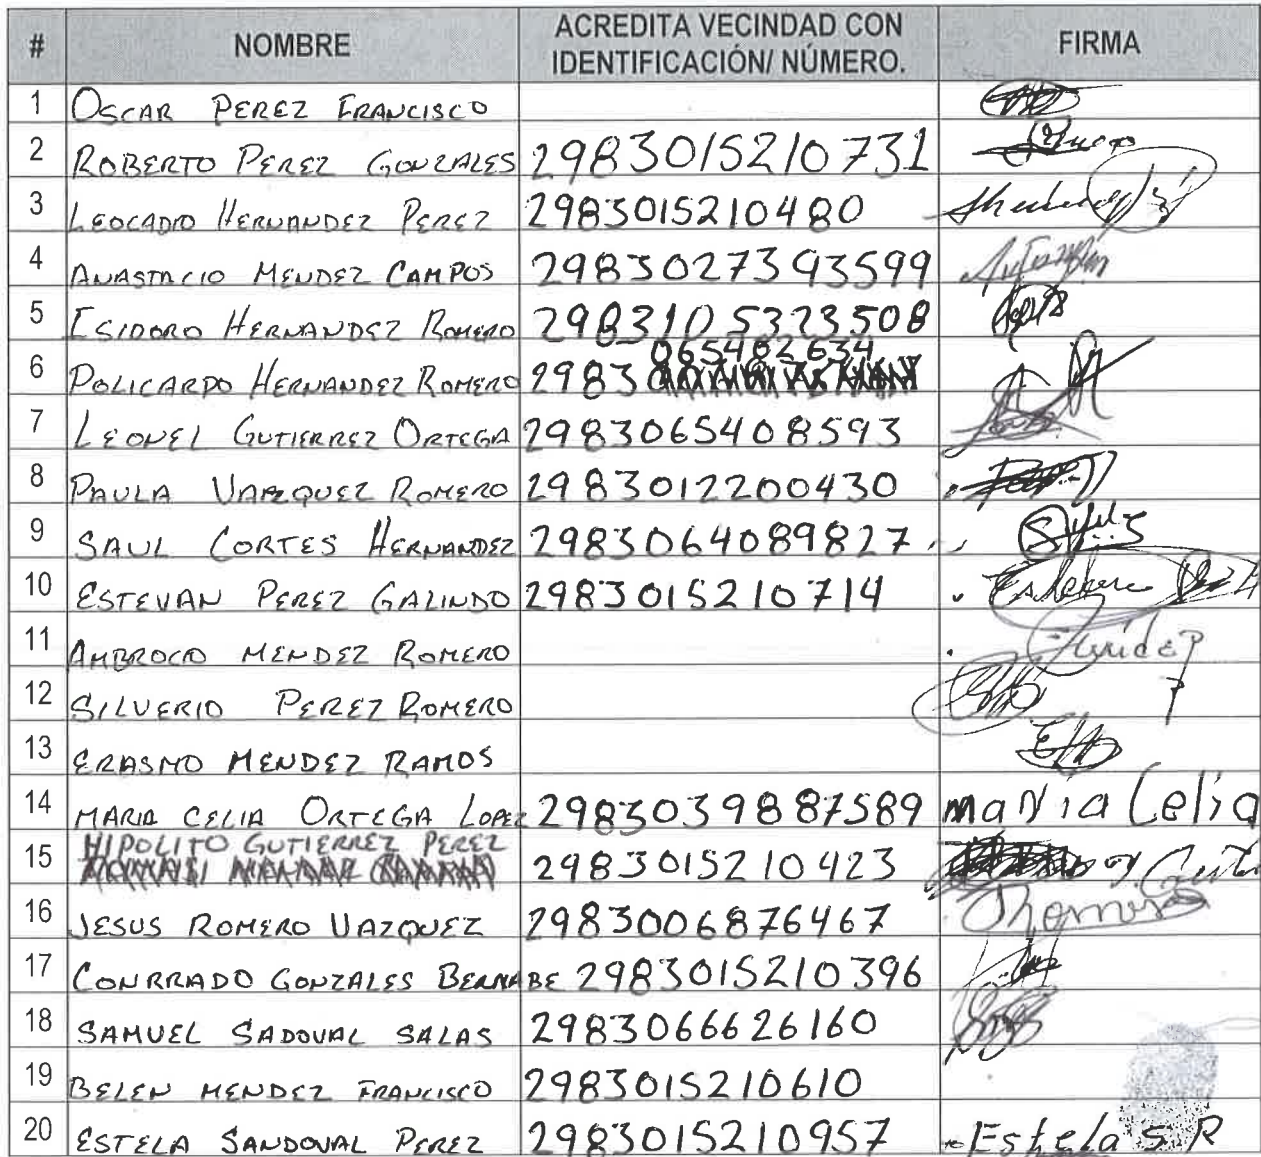 # NOMBRE ACREDITA VECINDAD CON IDENTIFICACIÓN/ NÚMERO. FIRMA
1 OSCAR PEREZ FRANCISCO
2 ROBERTO PEREZ GONZALES 2983015210731
3 LEOCADIO HERNANDEZ PEREZ 2983015210480
4 ANASTACIO MENDEZ CAMPOS 2983027393599
5 ISIDORO HERNANDEZ ROMERO 2983105323508
6 POLICARPO HERNANDEZ ROMERO 2983065482634
7 LEONEL GUTIERREZ ORTEGA 2983065408593
8 PAULA VAZQUEZ ROMERO 2983012200430
9 SAUL CORTES HERNANDEZ 2983064089827
10 ESTEVAN PEREZ GALINDO 2983015210714
11 AMBROCIO MENDEZ ROMERO
12 SILVERIO PEREZ ROMERO
13 ERASMO MENDEZ RAMOS
14 MARIA CELIA ORTEGA LOPEZ 2983039887589 maria Celia
15 HIPOLITO GUTIERREZ PEREZ 2983015210423
16 JESUS ROMERO VAZQUEZ 2983006876467
17 CONRRADO GONZALES BERNABE 2983015210396
18 SAMUEL SADOVAL SALAS 2983066626160
19 BELEN MENDEZ FRANCISCO 2983015210610
20 ESTELA SANDOVAL PEREZ 2983015210957 Estela S.P